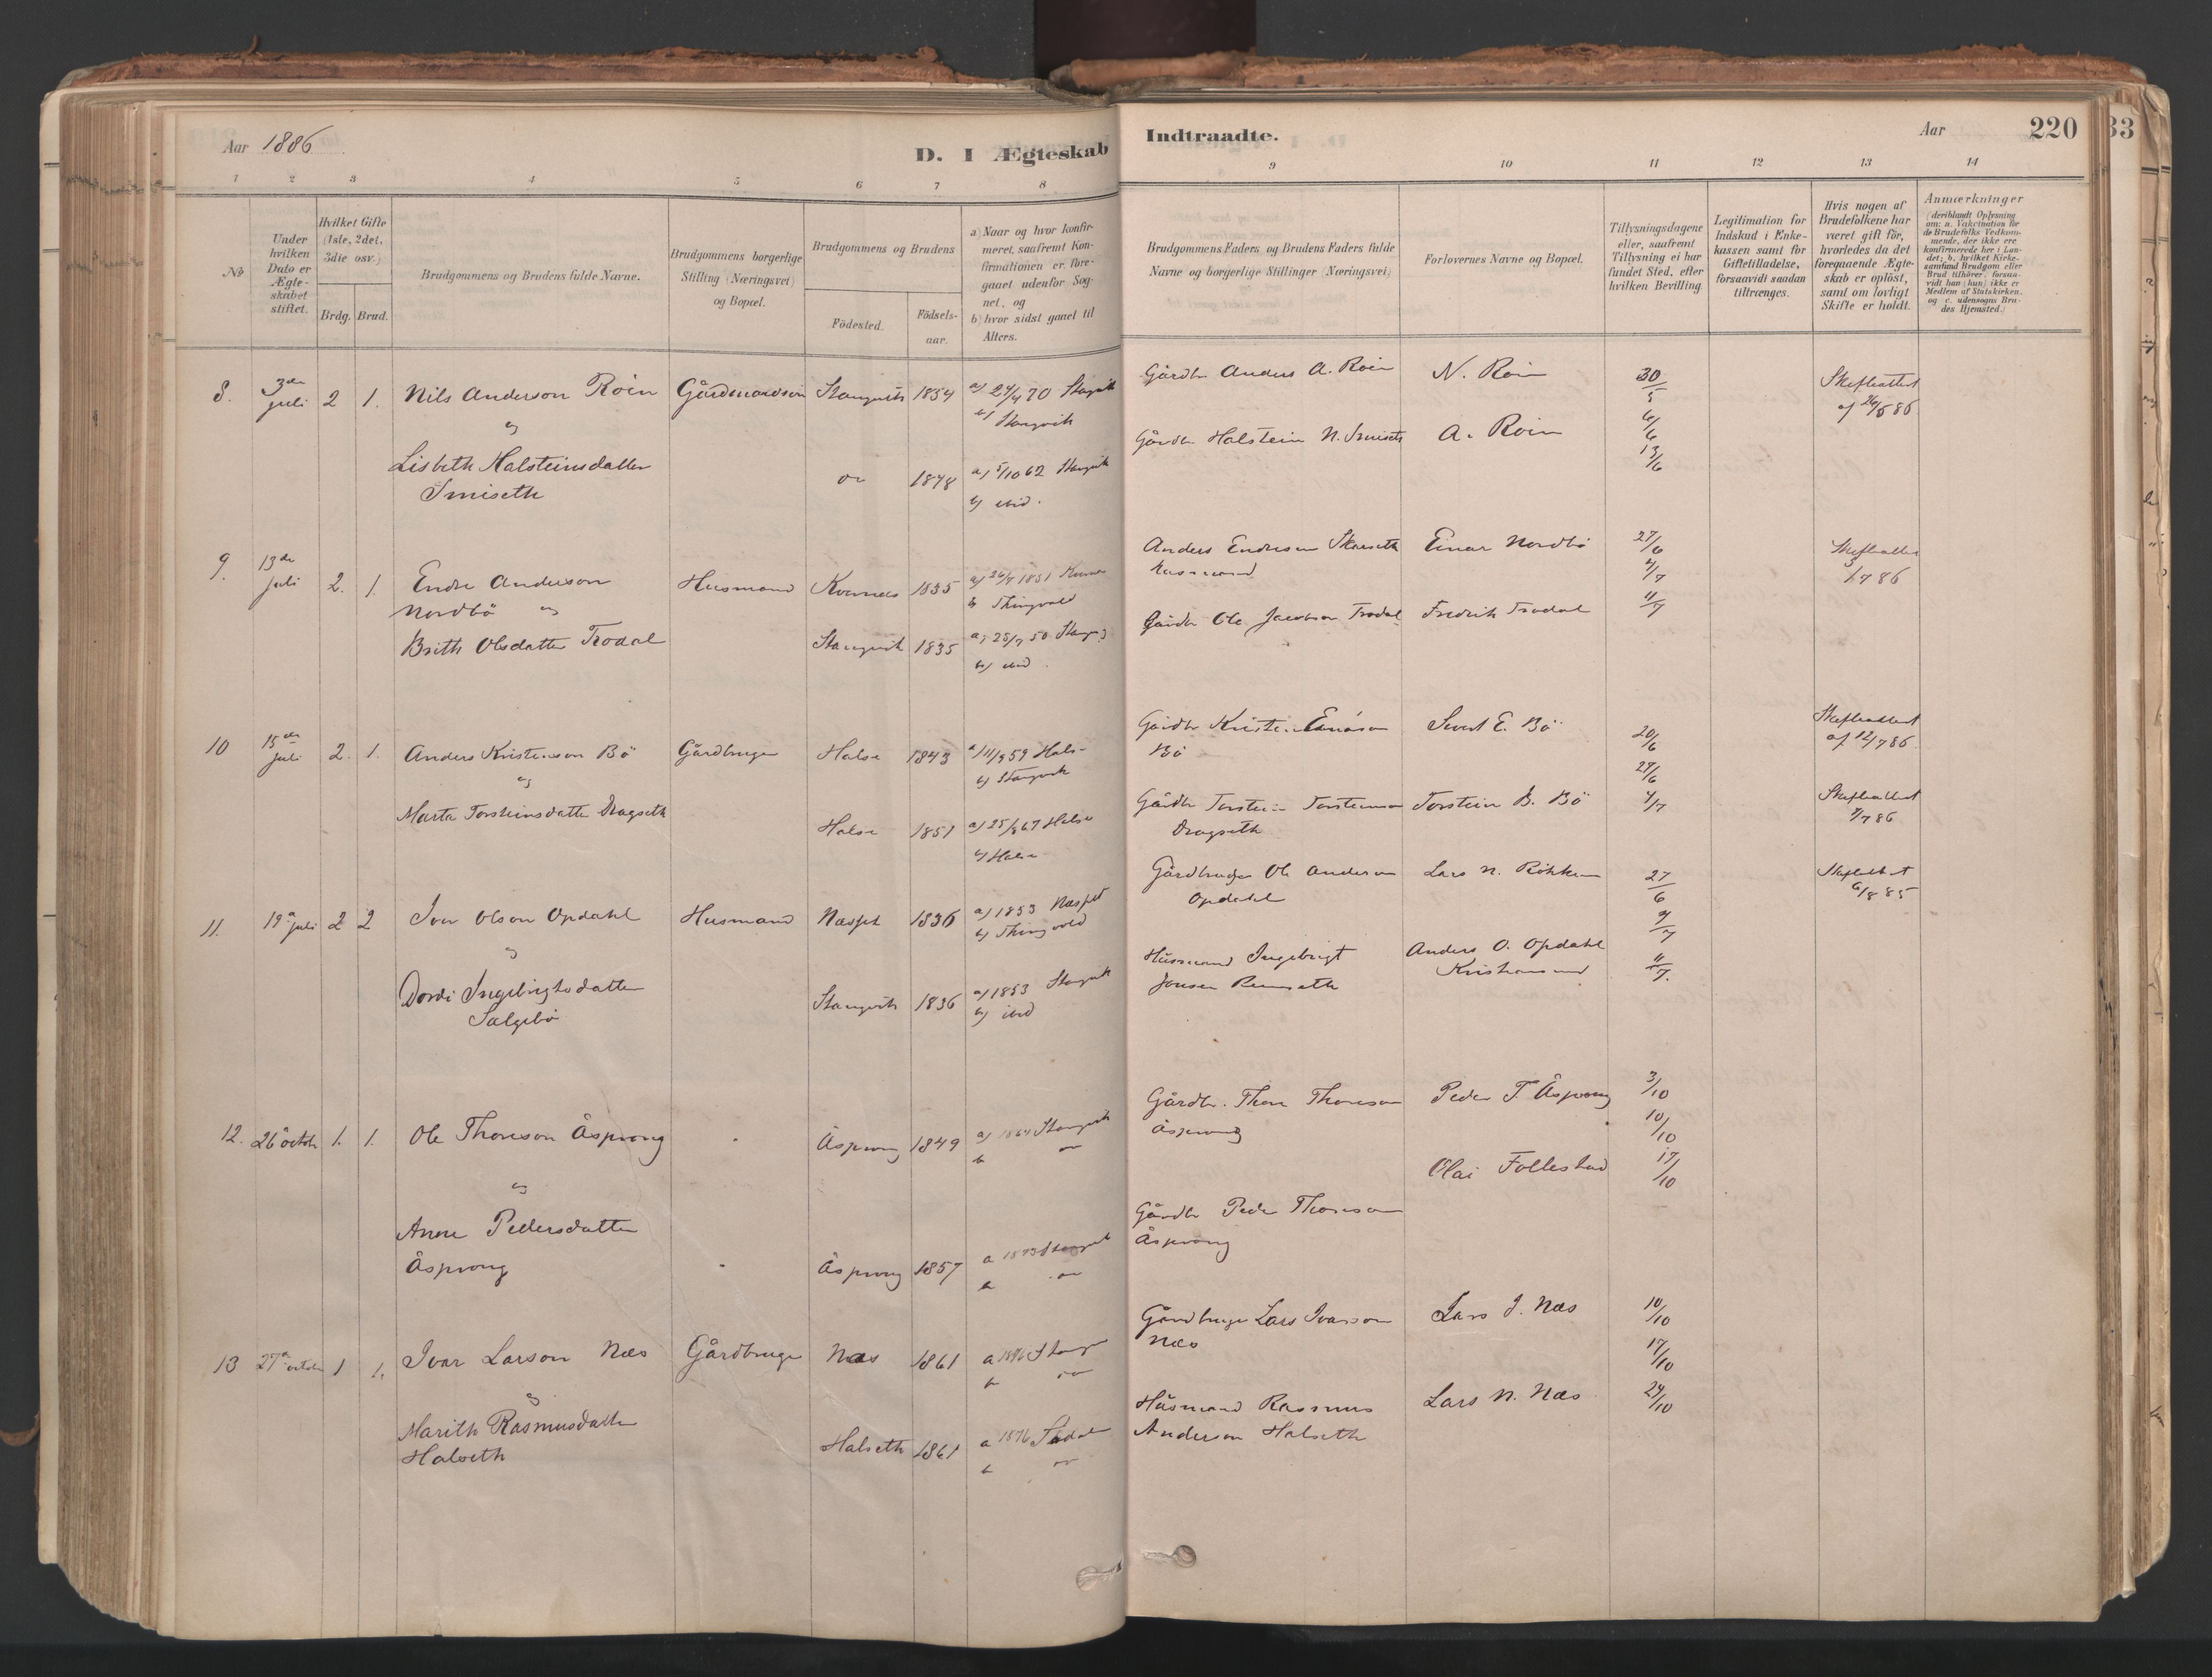 Aar 1886
D. I Ægteskab
1 2 3 4 5 6 7 8
No
Under hvilken Dato er Ægteskabet stiftet.
Hvilket Gifte (1ste, 2det, 3die osv.)
Brdg. Brud.
Brudgommens og Brudens fulde Navne.
Brudgommens borgerlige Stilling (Næringsvei) og Bopæl.
Brudgommens og Brudens
Fødested.
Fødselsaar.
a) Naar og hvor konfirmeret, saafremt Konfirmationen er foregaaet udenfor Sognet, og
b) hvor sidst gaaet til Alters.
8. 3de juli 2 1. Nils Anderson Röen Gårdmandssön Stangvik 1854 a) 24/4 70 Stangvik
b) Stangvik
og
Lisbeth Halsteinsdatter
Smiseth
do 1848 a) 5/10 62 Stangvik
b) ibid.
9. 13de juli 2. 1. Endre Anderson
Nordbö og
Husmand Kvernes 1835
b Thingvold
Brith Olsdatter Trodal
Stangvik 1835 a) 25/7 50 Stangv
b) ibid.
10 15de juli 2. 1. Anders Kristenson Bö Gårdbruger Halse 1843 a) 11/9 59 Halse
b) Stangvik
og
Marta Torsteinsdatter Dragseth
Halse 1851 a) 25/8 67 Halse
b) Halse
11. 19de juli 2 2 Iver Olson Opdahl Husmand Næsset 1836 a) 1853 Næsset
b) Thingvold
og
Dordi Ingebrigtsdatter
Salgebö
Stangvik 1836 a) 1853 Stangvik
b) ibid
12. 26 octob 1. 1. Ole Thoreson Åsprong Åsprong 1849 a) 1864 Stangvik
b do
og
Anne Pedersdatter
Åsprong
Åsprong 1857 a 1873 Stangvik
b do
13 27 octob 1 1. Ivar Larson Næs Gårdbruger Næs 1861 a 1876 Stangv
b do
og
Marith Rasmusdatter
Halseth
Halseth 1861 a 1876
b do
Indtraadte.
Aar 220
33
9 10 11 12 13 14
Brudgommens Faders og Brudens Faders fulde Navne og borgerlige Stillinger (Næringsvei)
Forlovernes Navne og Bopæl.
Tillysningsdagene eller, saafremt Tillysning ei har fundet Sted, efter hvilken Bevilling.
Legitimation for Indskud i Enkekassen samt for Giftetilladelse, forsaavidt saadan tiltrænges.
Hvis nogen af Brudefolkene har været gift før, hvorledes da det foregaaende Ægteskab er opløst, samt om lovligt Skifte er holdt.
Anmærkninger
(deriblandt Oplysning om: a. Vakcination for de Brudefolks Vedkommende, der ikke ere konfirmerede her i Landet; b. hvilket Kirkesamfund Brudgom eller Brud tilhører, forsaavidt han (hun) ikke er Medlem af Statskirken, og c. udensogns Brudes Hjemsted.)
Gårdbr Anders A. Röen N. Röen 30/5 Skifteattest
af 26/5 86
6/6
Gårdbr Halstein N. Smiseth A. Röen
13/6
Anders Endresen Skarseth Einar Nordbö 27/6 Skifteattest
3/7 86
Husmand 4/7
Gårdbr Ole Jacobson Trodal Fredrik Trodal 11/7
Gårdbr Kristen Bö Sivert E. Bö 20/6 Skifteattest
af 12/7 86
27/6
Gårdbr Torstein Torsteinson Torstein B. Bö 4/7 Skifteattest
7/7 86
Dragseth
Gårdbruger Ole Anderson Lars N. Rökkum 27/6 Skifteattest
6/8 85
Opdahl
4/7
Husmand Ingebrigt Anders O. Opdahl
Jonsen Kristiansund 11/7.
Gårdbr. Thore Thoreson Peder T Åsprong 3/10
Åsprong 10/10
Olai Follestad 17/10
Gårdbr Peder Thoreson
Åsprong
Gårdbruger Lars Ivarson Lars J. Næs 10/10
Næs
17/10
Husmand Rasmus Lars N. Næs 24/10
Anderson Halseth